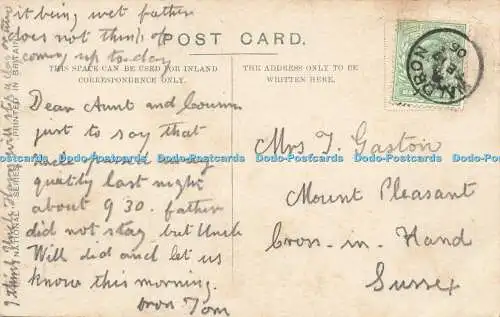 it being wet father
does not think of
coming up today
POST CARD.
THIS SPACE CAN BE USED FOR INLAND
CORRESPONDENCE ONLY.
THE ADDRESS ONLY TO BE
WRITTEN HERE.
Dear Aunt and Cousins
just to say that
away
last night
about 9 30. father
did not stay but Uncle
Will did and let us
know this morning.
from Tom
Mrs T. Gaston
Mount Pleasant
Cross-in-Hand
Sussex
NATIONAL SERIES
PRINTED IN BRITAIN
I think
WALDRON
06
Dodo-Postcards Dodo-Postcards Dodo-Postcards Dodo-Postcards Dodo-Postcards